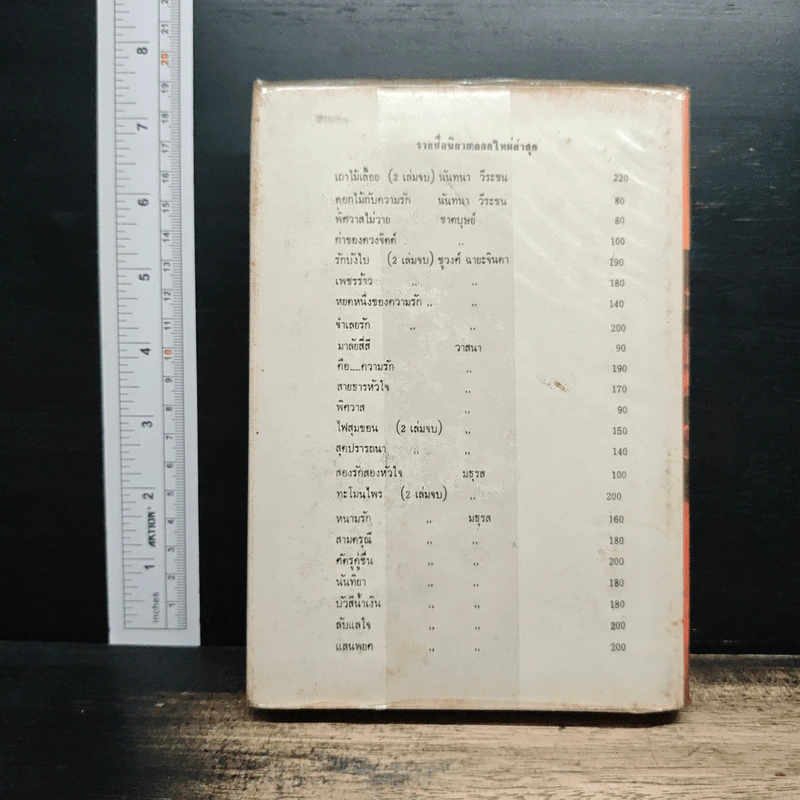 รายชื่อนิยายออกใหม่ล่าสุด
เถาไม้เลื้อย (2 เล่มจบ) นันทนา วีระชน 220
ดอกไม้กับความรัก นันทนา วีระชน 80
พิศวาสไม่วาย ชาตบุษย์ 80
ค่าของดวงจิตต์ ,, 100
รักบังใบ (2 เล่มจบ) ชูวงศ์ ฉายะจินดา 190
เพชรร้าว ,, ,, 180
หยดหนึ่งของความรัก ,, ,, 140
จำเลยรัก ,, ,, 200
มาลัยสี่สี วาสนา 90
คือ....ความรัก ,, 190
สายธารหัวใจ ,, 170
พิศวาส ,, 90
ไฟสุมขอน (2 เล่มจบ) ,, 150
สุดปรารถนา ,, ,, 140
สองรักสองหัวใจ มธุรส 100
ทะโมนไพร (2 เล่มจบ) ,, 200
หนามรัก ,, มธุรส 160
สามดรุณี ,, ,, 180
ศัตรูคู่ชื่น ,, ,, 200
นันทิยา ,, ,, 180
บัวสีน้ำเงิน ,, ,, 180
ลับแลใจ ,, ,, 200
แสนพยศ ,, ,, 200
8
7
6
5
4
3
2
1
AKTION
inches
21
20
19
18
17
16
15
14
13
12
11
10
9
8
7
6
5
4
3
2
1